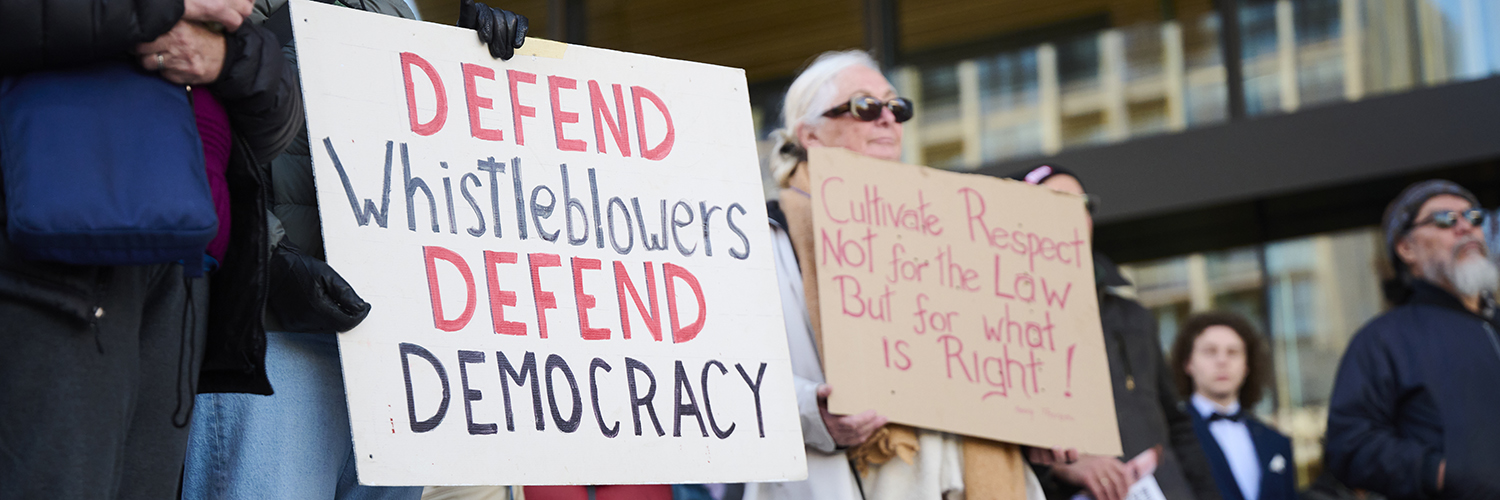 DEFEND
Whistleblowers
DEFEND
DEMOCRACY
Cultivate Respect
Not for the Law
But for what
is Right!